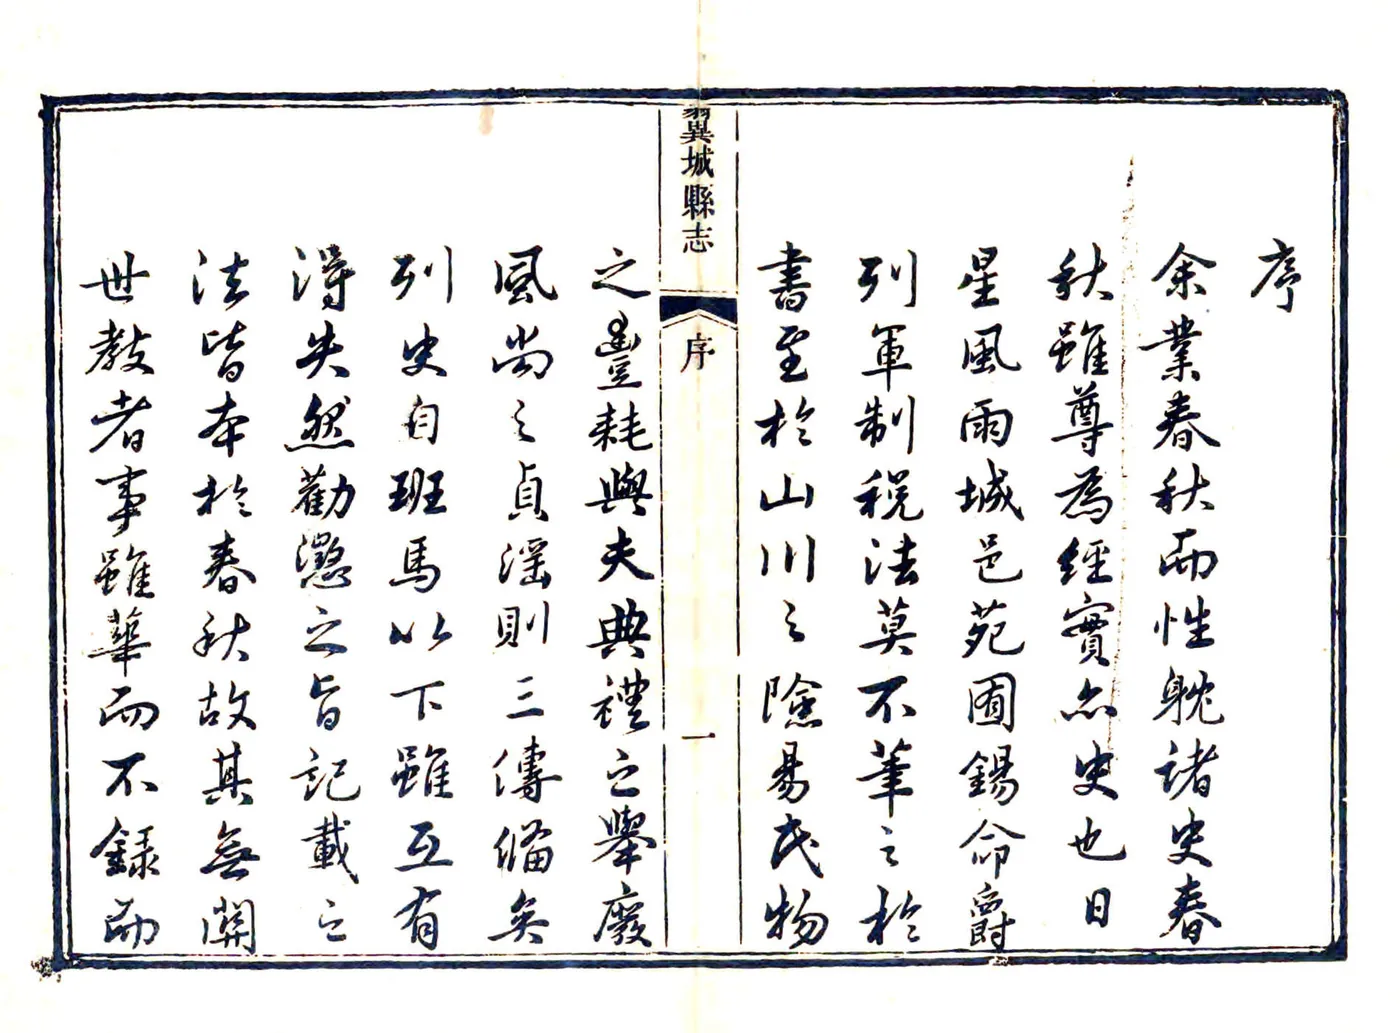 序
余業春秋而性躭諸史春
秋雖尊為經實亦史也日
星風雨城邑苑囿錫命爵
列軍制稅法莫不筆之於
書至於山川之險易民物
翼城縣志
序
一
之豐耗與夫典禮之舉廢
風尚之貞淫則三傳備矣
列史自班馬以下雖互有
得失然勸懲之旨記載之
法皆本於春秋故其無關
世教者事雖華而不錄而